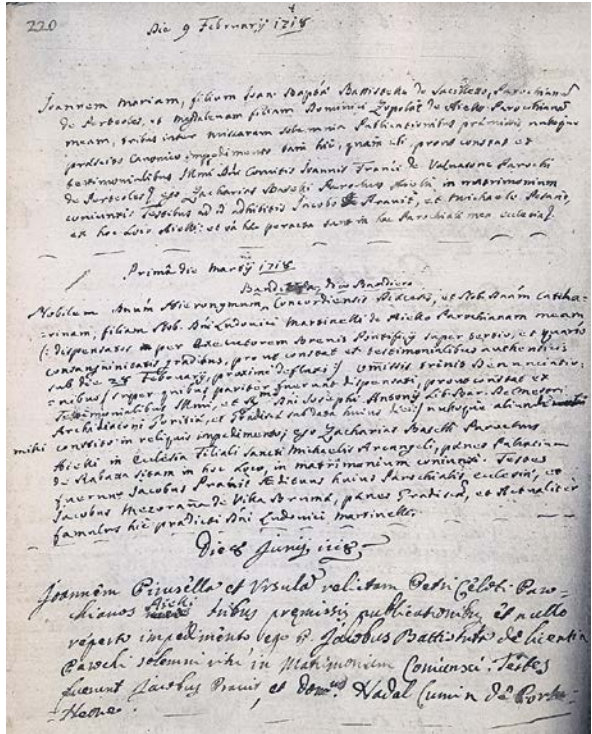 220
Die 9 Februarij 1718
Joannem Mariam, filium Joan: Bapta Battistella de Sacileto, Parochianū
de Perteoles, et Magdalenam filiam Dominici Zupolat de Aiello Parochianā
meam, tribus inter missarum solemnia Publicationibus premissis nulloque
prorsus Canonico impedimento tam hic, quam ibi prout constat ex
testimonialibus Comitis Joannis Francisci de Valuasone Parochi
de Perteoles ego Zacharias Baselli Parochus Aielli, in matrimonium
coniunxi: Testibus ad id adhibitis Jacobo Prauit, et Michaele
ex hoc Loco Aielli: et hac Parochiali mea ecclesia
Prima die Martij 1718
Nobilem Hieronymum Concordiensis et Nob. Catha=
=rinam, filiam Nob. Dni Ludouici Martinelli de Aiello Parochianam meam
(: dispensatis per Executorem Breuis Pontificij super tertio, et quarto
consanguinitatis gradibus, prout constat ex testimonialibus authenticis
sub die 28 Februarij, proximi deflaxi :) omissis trinis Denunciatio=
=nibus (super quibus pariter fuerunt dispensati, prout constat ex
Testimonialibus et Dni Josephi Antonij Lib. Bar. Delmestri
Archidiaconi Goritiæ, et Gradiscæ sub data huius diei) nulloque aliunde
mihi constito in reliquis impedimento; ego Zacharias Baselli Parochus
Aielli in Ecclesia Filiali Sancti Michaelis Arcangeli, penes Palatium
de Rabata sitam in hoc Loco, in matrimonium coniunxi. Testes
fuerunt Jacobus Prauit Ædituus huius Parochialis ecclesiæ, et
Jacobus de Villa Bruma, penes Gradiscā, et Actualiter
famulus hic prædicti Dni Ludouici Martinelli.
Die 8 Junij 1718
Joannem Pirusella et Vrsulā relictam Petri Celoti Paro=
chianos Aielli tribus premissis publicationibus et nullo
reperto impedimento ego P. Jacobus Battistuta de licentia
Parochi solemni ritu in Matrimonium Coniunxi. Testes
fuerunt Jacobus Prauit, et Nadal Cumin de